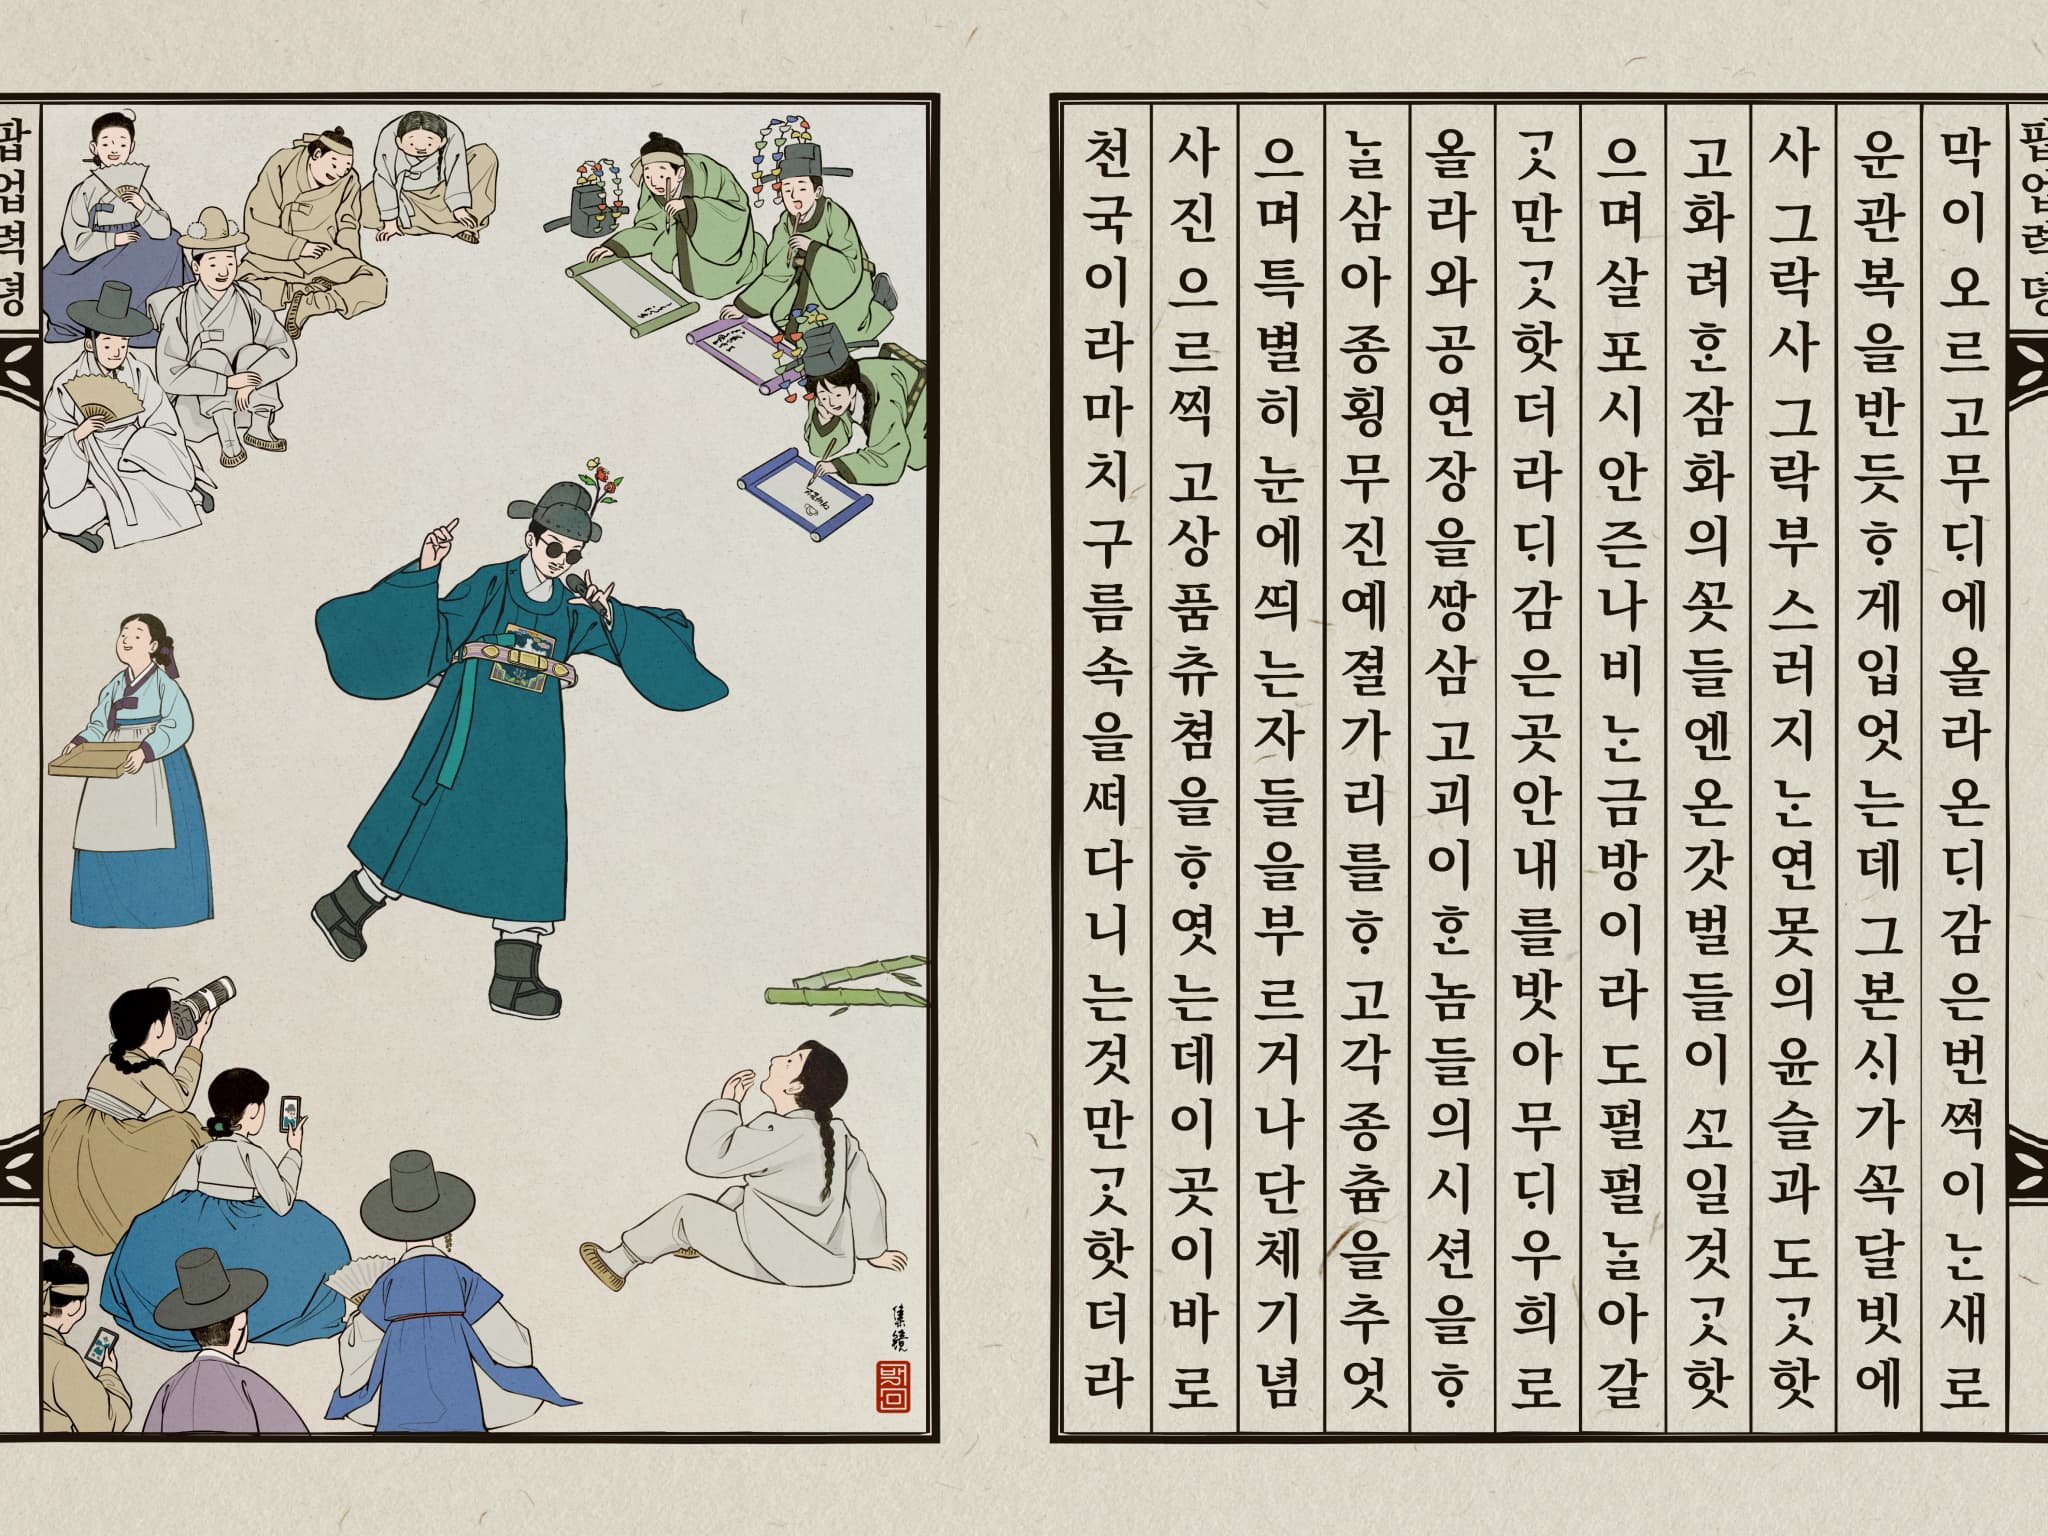 막이오르고무ᄃᆡ에올라온ᄃᆡ감은번쪅이ᄂᆞᆫ새로
운관복을반듯ᄒᆞ게입엇는데그본ᄉᆡ가ᄭᅩᆨ달빗에
사그락사그락부스러지ᄂᆞᆫ연못의윤슬과도ᄀᆞᆺ핫
고화려ᄒᆞᆫ잠화의ᄭᅩᆺ들엔온갓벌들이ᄭᅩ일것ᄀᆞᆺ핫
으며살포시안즌나비ᄂᆞᆫ금방이라도펄펄ᄂᆞᆯ아갈
ᄀᆞᆺ만ᄀᆞᆺ핫더라ᄃᆡ감은곳안내를밧아무ᄃᆡ우희로
올라와공연장을ᄯᅡᆼ삼고괴이ᄒᆞᆫ놈들의시션을ᄒᆞ
ᄂᆞᆯ삼아종횡무진예졀가리를ᄒᆞ고각종츔을추엇
으며특별히눈에ᄯᅴ는자들을부르거나단체기념
사진으르찍고상품츄쳠을ᄒᆞ엿는데이곳이바로
천국이라마치구름속을ᄯᅥ다니는것만ᄀᆞᆺ핫더라